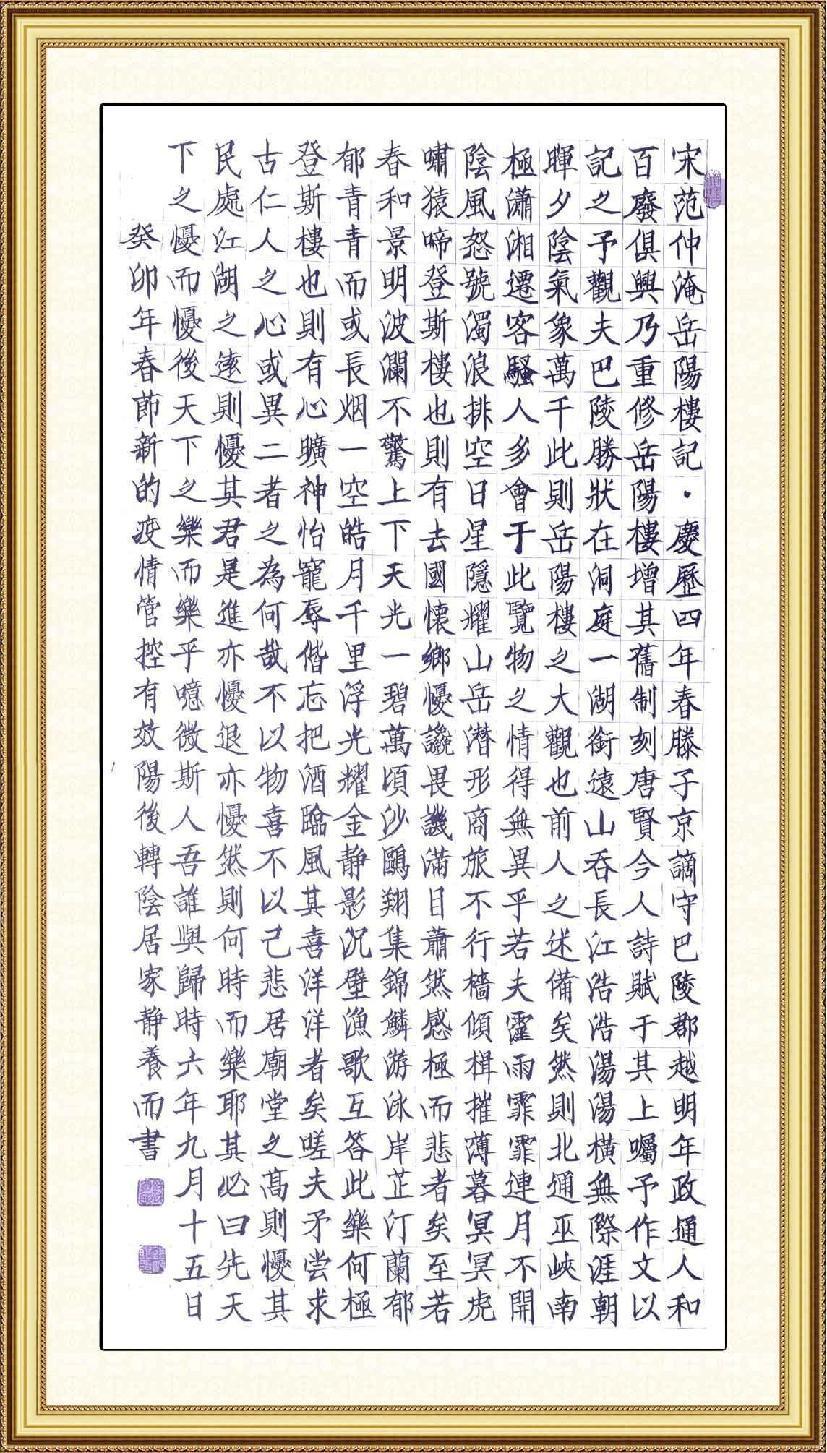 宋范仲淹岳陽樓記·慶歷四年春滕子京謫守巴陵郡越明年政通人和
百廢俱興乃重修岳陽樓增其舊制刻唐賢今人詩賦于其上囑予作文以
記之予觀夫巴陵勝狀在洞庭一湖銜遠山吞長江浩浩湯湯橫無際涯朝
暉夕陰氣象萬千此則岳陽樓之大觀也前人之述備矣然則北通巫峽南
極瀟湘遷客騷人多會于此覽物之情得無異乎若夫霪雨霏霏連月不開
陰風怒號濁浪排空日星隱耀山岳潛形商旅不行檣傾楫摧薄暮冥冥虎
嘯猿啼登斯樓也則有去國懷鄉懮讒畏譏滿目蕭然感極而悲者矣至若
春和景明波瀾不驚上下天光一碧萬頃沙鷗翔集錦鱗游泳岸芷汀蘭郁
郁青青而或長烟一空皓月千里浮光耀金静影沉璧漁歌互答此樂何極
登斯樓也則有心曠神怡寵辱偕忘把酒臨風其喜洋洋者矣嗟夫矛嘗求
古仁人之心或異二者之為何哉不以物喜不以己悲居廟堂之高則懮其
民處江湖之遠則懮其君是進亦懮退亦懮然則何時而樂耶其必曰先天
下之懮而懮後天下之樂而樂乎噫微斯人吾誰與歸時六年九月十五日
癸卯年春節新的疫情管控有效陽後轉陰居家静養而書